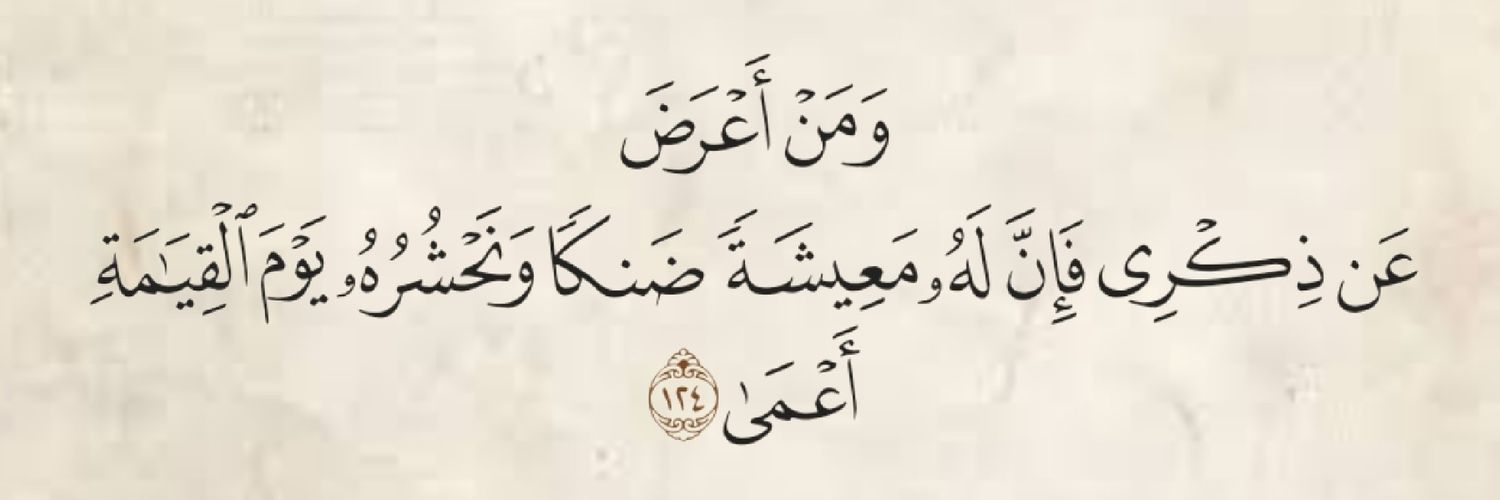 وَمَنْ أَعْرَضَ
عَن ذِكْرِى فَإِنَّ لَهُۥ مَعِيشَةً ضَنكًا وَنَحْشُرُهُۥ يَوْمَ ٱلْقِيَـٰمَةِ
أَعْمَىٰ ١٢٤